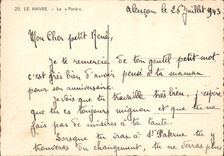 29. LE HAVRE. - Le « Paris ».
Alençon le 26 Juillet 1943
Mon Cher petit René,
Je te remercie de ton gentil petit mot
c'est très bien d'avoir pensé à ta maman
pour son anniversaire.
Je vois que tu travailles très bien, j'espère
que tu es toujours mignon et que tu ne
fais pas de misères à ta tante.
Lorsque tu iras à St Paterne tu y
trouveras du changement, tu ne seras plus